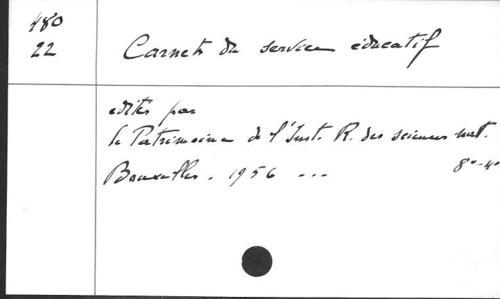 480
22
Carnets du service éducatif
édités par
le Patrimoine de l'Inst. R. des sciences nat.
Bruxelles. 1956 ...
8°-4°